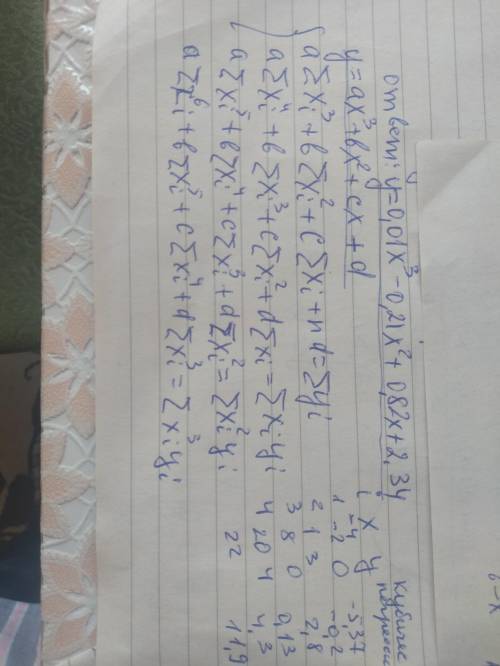 ответ: y=0,01x³-0,21x²+0,82x+2,34
y=ax³+bx²+cx+d
a∑xi³+b∑xi²+c∑xi+nd=∑yi
a∑xi⁴+b∑xi³+c∑xi²+d∑xi=∑xiyi
a∑xi⁵+b∑xi⁴+c∑xi³+d∑xi²=∑xi²yi
a∑xi⁶+b∑xi⁵+c∑xi⁴+d∑xi³=∑xi³yi
i x y
-4 -5,37
1 -2 0 -0,2
2 1 3 2,8
3 8 0 0,13
4 20 4 4,3
22 11,9
6-x